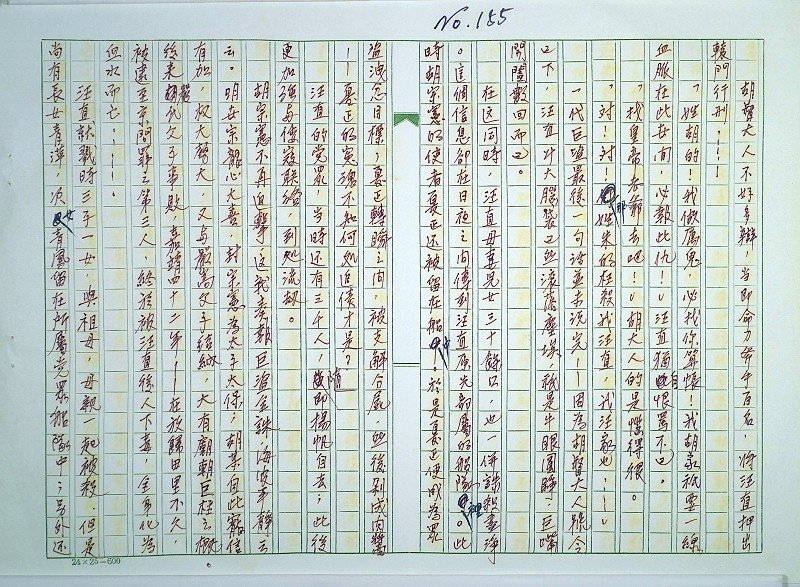 No.155
胡督大人不好多辯，当即命刀斧手百名，將汪直押出
轅門行刑。……
「姓胡的！我做厲鬼，必找你算帳！我胡家祇要一線
血脈在此世间，必報此仇！」汪直猶自恨罵不已。
「找皇帝老爺去吧！」胡大人的是懂得很。
「对！对！那姓朱的枉殺我汪直，我汪家也……」
一代巨盜最後一句话並未说完——因為胡督大人號令
已下，汪直斗大腦袋已然滾落塵埃，祇是牛眼圓睜，巨嘴
開闔數回而已。
在这同時，汪直母妻兒女三十餘口，也一併誅殺盡净
。這個信息卻在日夜之间傳到汪直原先部屬的船隊裡。此
時胡宗憲的使者夏正还被留在船中。於是夏正便成為眾
盜洩忿目標，夏正轉瞬之间，被支解分屍，然後剁成肉醬
——夏正的冤魂不知何処追債才是？
汪直的党眾，当時还有三千人，隨即揚帆自去；此後
更加強与倭寇联络，到処流刼。
胡宗憲不再追擊，這我奏報巨盜全誅，海波平靜云
云。明世宗龍心大喜，封宗憲為太子太保；胡某自此寵信
有加，权大勢大，又与嚴嵩父子结納，大有廟朝巨柱之概
後來嚴氏父子事敗，嘉靖四十二年——在放歸田里不久，
被逮至京问罪之第三人，終於被汪直後人下毒，全身化为
血水而亡。……。
汪直就戮時三子一女，與祖母，母親一起被殺。但是
尚有長女青萍，次女青鳳留在所屬党眾船隊中；另外还
24×25=600